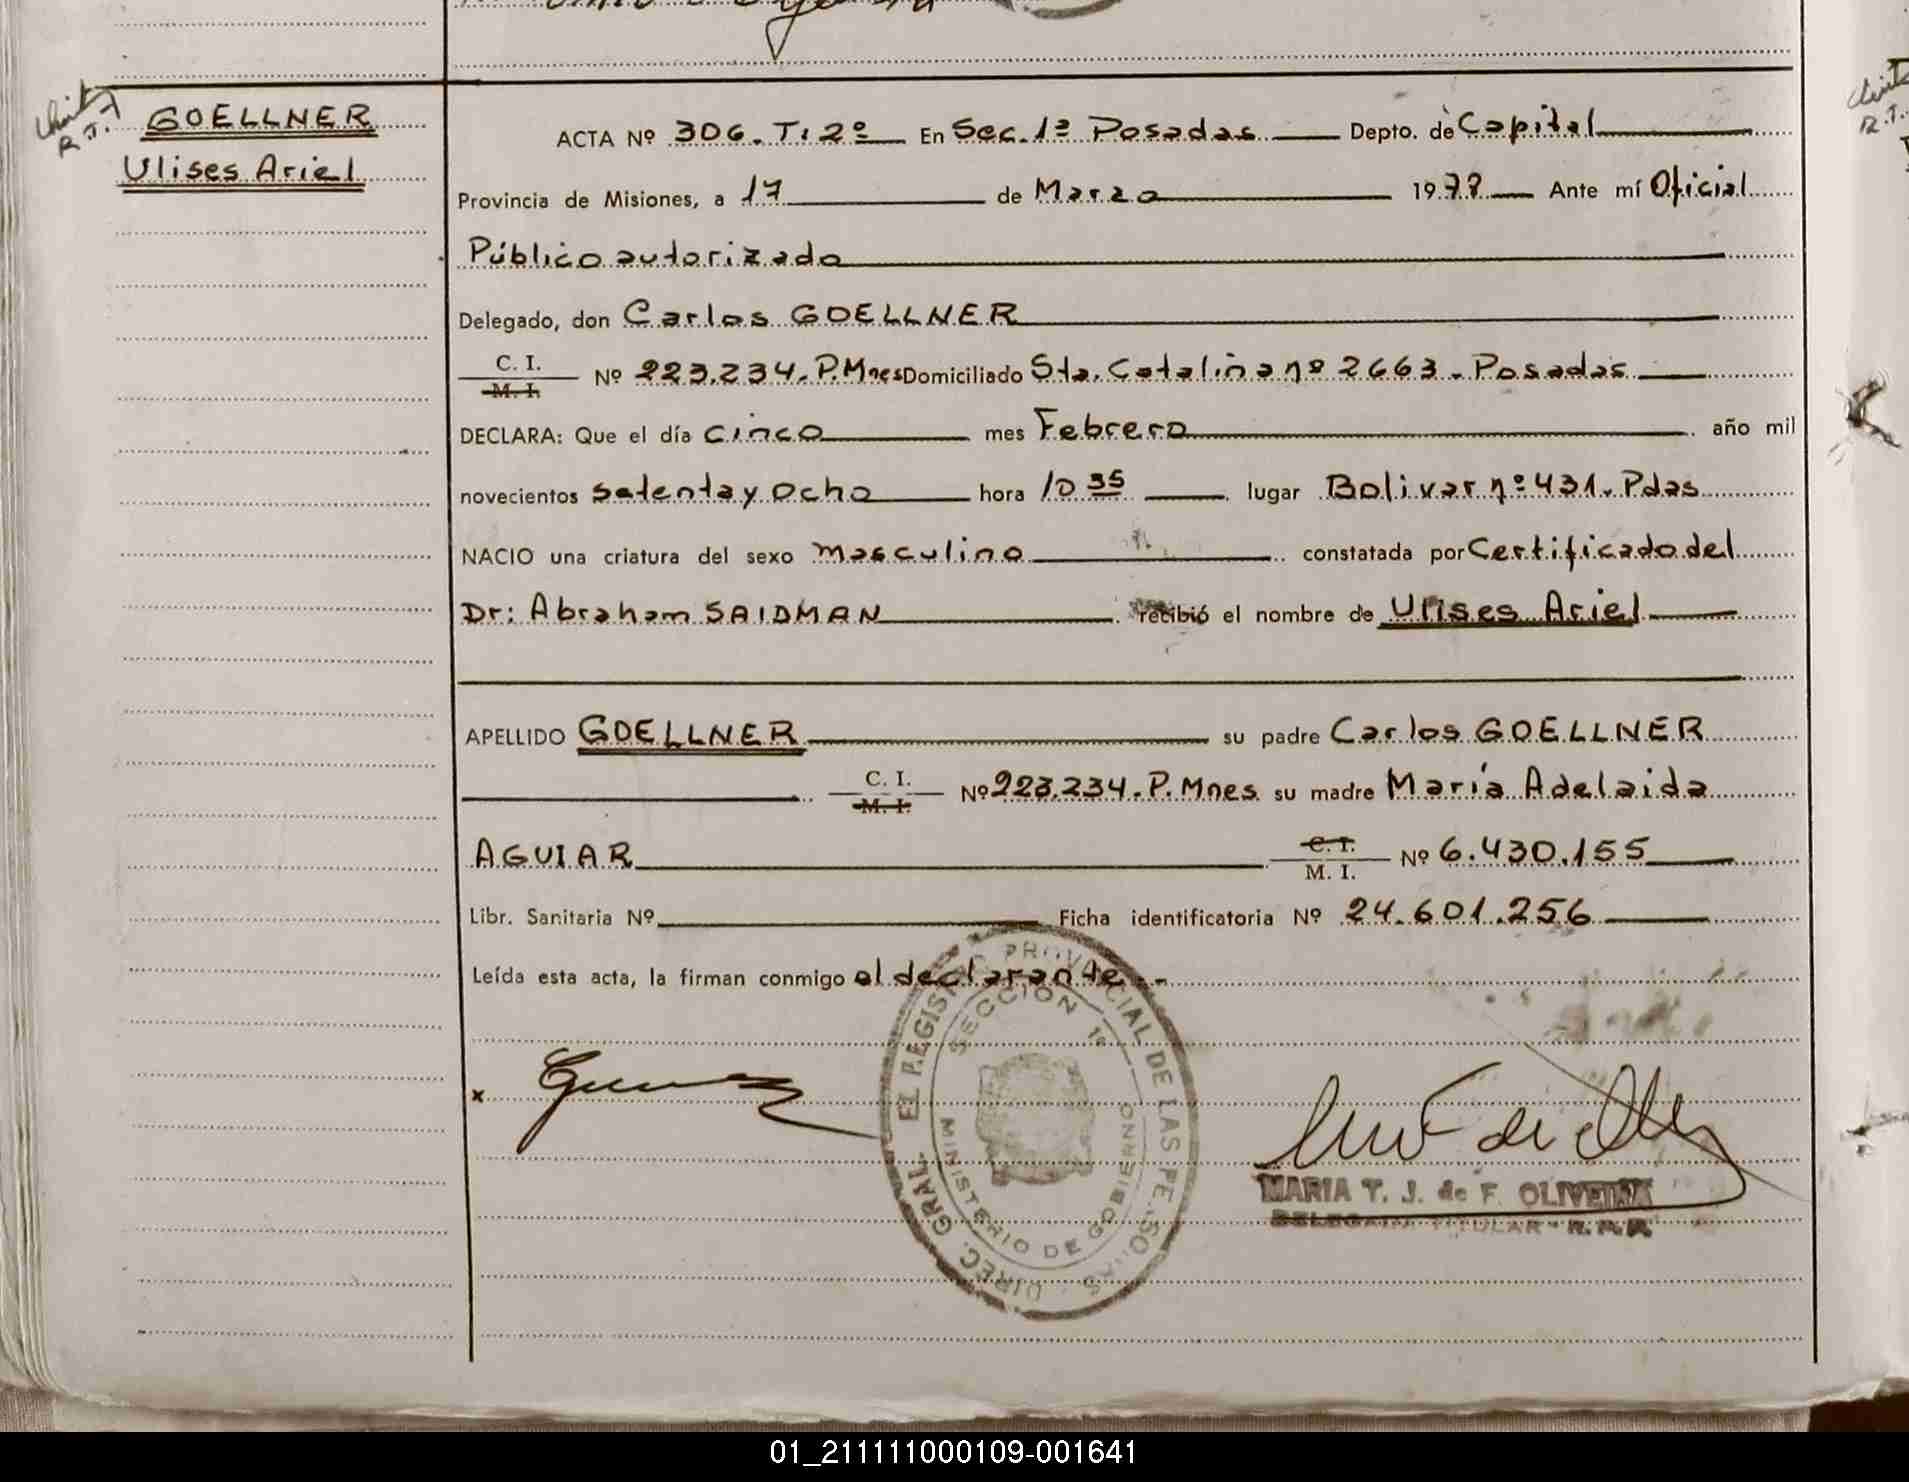 GOELLNER
Ulises Ariel
R.T.
ACTA Nº 306. T: 2º En Sec. 1ª Posadas Depto. de Capital
Provincia de Misiones, a 17 de Marzo 1978 Ante mí Oficial
Público autorizado
Delegado, don Carlos GOELLNER
C. I.
M. I. Nº 223.234. P. Mnes Domiciliado Sta. Catalina nº 2663. Posadas
DECLARA: Que el día cinco mes Febrero año mil
novecientos setenta y ocho hora 10 35 lugar Bolivar nº 431. Pdas
NACIO una criatura del sexo masculino constatada por Certificado del
Dr: Abraham SAIDMAN recibió el nombre de Ulises Ariel
APELLIDO GOELLNER su padre Carlos GOELLNER
C. I.
M. I. Nº 223.234. P. Mnes su madre María Adelaida
AGUIAR C. I.
M. I. Nº 6.430.155
Libr. Sanitaria Nº Ficha identificatoria Nº 24.601.256
Leída esta acta, la firman conmigo el declarante --
x
DIREC. GRAL. EL REGISTRO PROVINCIAL DE LAS PERSONAS
SECCION 1ª
MINISTERIO DE GOBIERNO
MARIA T. J. de F. OLIVEIRA
DELEGADA TITULAR - R.P.P.
R.T.
01_211111000109-001641